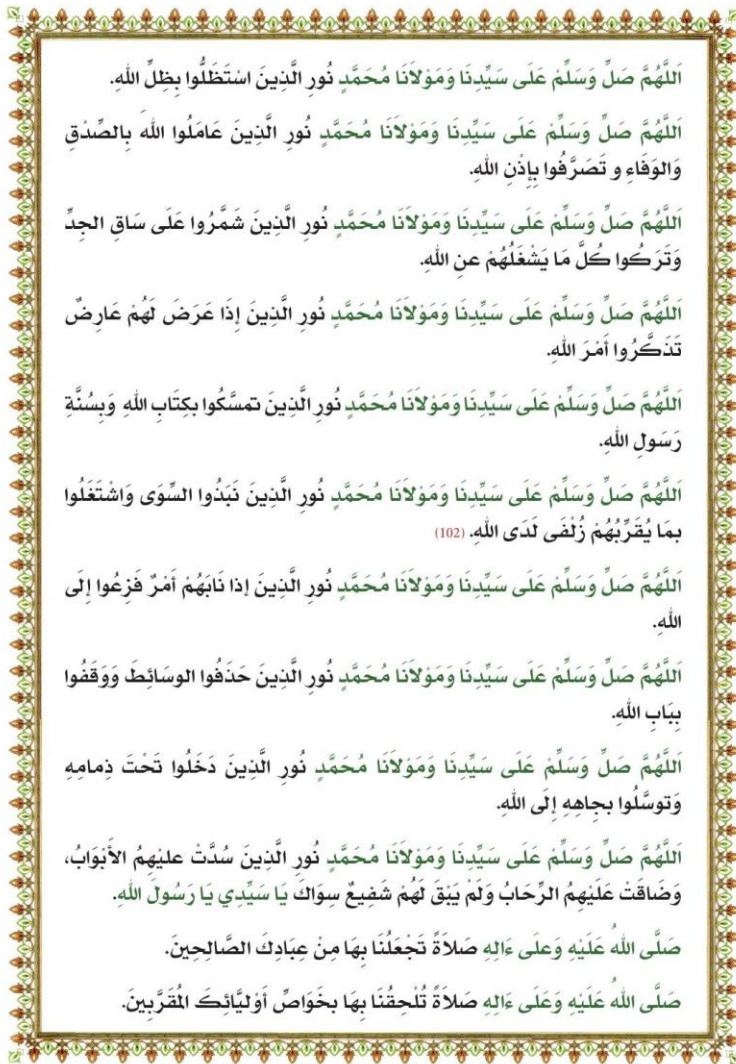 اَللَّهُمَّ صَلِّ وَسَلِّمْ عَلَى سَيِّدِنَا وَمَوْلاَنَا مُحَمَّدٍ نُورِ الَّذِينَ اسْتَظَلُّوا بِظِلِّ اللهِ.
اَللَّهُمَّ صَلِّ وَسَلِّمْ عَلَى سَيِّدِنَا وَمَوْلاَنَا مُحَمَّدٍ نُورِ الَّذِينَ عَامَلُوا اللهَ بِالصِّدْقِ
وَالوَفَاءِ و تَصَرَّفُوا بِإِذْنِ اللهِ.
اَللَّهُمَّ صَلِّ وَسَلِّمْ عَلَى سَيِّدِنَا وَمَوْلاَنَا مُحَمَّدٍ نُورِ الَّذِينَ شَمَّرُوا عَلَى سَاقِ الجِدِّ
وَتَرَكُوا كُلَّ مَا يَشْغَلُهُمْ عنِ اللهِ.
اَللَّهُمَّ صَلِّ وَسَلِّمْ عَلَى سَيِّدِنَا وَمَوْلاَنَا مُحَمَّدٍ نُورِ الَّذِينَ إِذَا عَرَضَ لَهُمْ عَارِضٌ
تَذَكَّرُوا أَمْرَ اللهِ.
اَللَّهُمَّ صَلِّ وَسَلِّمْ عَلَى سَيِّدِنَا وَمَوْلاَنَا مُحَمَّدٍ نُورِ الَّذِينَ تمسَّكُوا بكِتَابِ اللهِ وَبِسُنَّةِ
رَسُولِ اللهِ.
اَللَّهُمَّ صَلِّ وَسَلِّمْ عَلَى سَيِّدِنَا وَمَوْلاَنَا مُحَمَّدٍ نُورِ الَّذِينَ نَبَذُوا السِّوَى وَاشْتَغَلُوا
بِمَا يُقَرِّبُهُمْ زُلْفَى لَدَى اللهِ. (102)
اَللَّهُمَّ صَلِّ وَسَلِّمْ عَلَى سَيِّدِنَا وَمَوْلاَنَا مُحَمَّدٍ نُورِ الَّذِينَ إِذا نَابَهُمْ أَمْرٌ فَزِعُوا إِلَى
اللهِ.
اَللَّهُمَّ صَلِّ وَسَلِّمْ عَلَى سَيِّدِنَا وَمَوْلاَنَا مُحَمَّدٍ نُورِ الَّذِينَ حَذَفُوا الوسَائِطَ وَوَقَفُوا
بِبَابِ اللهِ.
اَللَّهُمَّ صَلِّ وَسَلِّمْ عَلَى سَيِّدِنَا وَمَوْلاَنَا مُحَمَّدٍ نُورِ الَّذِينَ دَخَلُوا تَحْتَ ذِمامِهِ
وَتوسَّلُوا بجاهِهِ إِلَى اللهِ.
اَللَّهُمَّ صَلِّ وَسَلِّمْ عَلَى سَيِّدِنَا وَمَوْلاَنَا مُحَمَّدٍ نُورِ الَّذِينَ سُدَّتْ عليْهِمُ الأَبْوَابُ،
وَضَاقَتْ عَلَيْهِمُ الرِّحَابُ وَلَمْ يَبْقَ لَهُمْ شَفِيعٌ سِوَاكَ يَا سَيِّدِي يَا رَسُولَ اللهِ.
صَلَّى اللهُ عَلَيْهِ وَعلَى ءَالِهِ صَلاَةً تَجْعَلُنَا بِهَا مِنْ عِبَادِكَ الصَّالِحِينَ.
صَلَّى اللهُ عَلَيْهِ وَعَلَى ءَالِهِ صَلاَةً تُلْحِقُنَا بِهَا بِخَوَاصِّ أَوْليَّائِكَ المُقَرَّبِينَ.